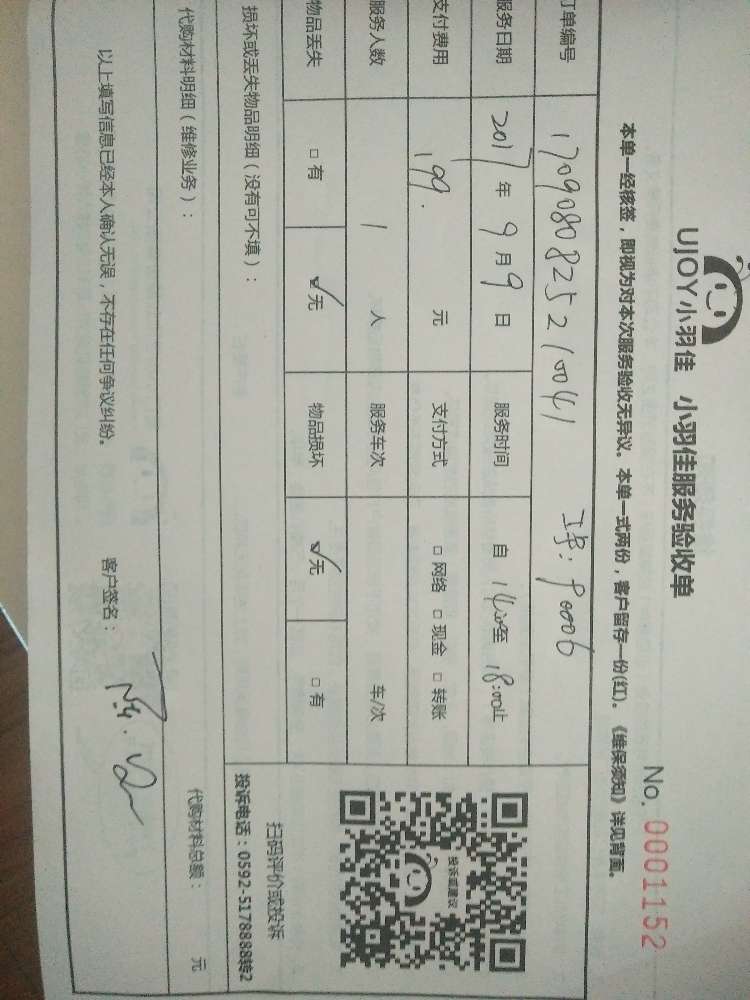 UJOY小羽佳 小羽佳服务验收单
No. 0001152
本单一经核签，即视为对本次服务验收无异议。本单一式两份，客户留存一份(红)。《维保须知》详见背面。
订单编号 1709080825210041 工号：P0006
服务日期 2017年9月9日 服务时间 自14:00至18:00止
支付费用 199. 元 支付方式 □网络 □现金 □转账
服务人数 1 人 服务车次 车/次
物品丢失 □有 ☑无 物品损坏 ☑无 □有
投诉或建议
扫码评价或投诉
投诉电话：0592-5178888转2
损坏或丢失物品明细（没有可不填）：
代购材料明细（维修业务）： 代购材料总额： 元
以上填写信息已经本人确认无误，不存在任何争议纠纷。 客户签名：